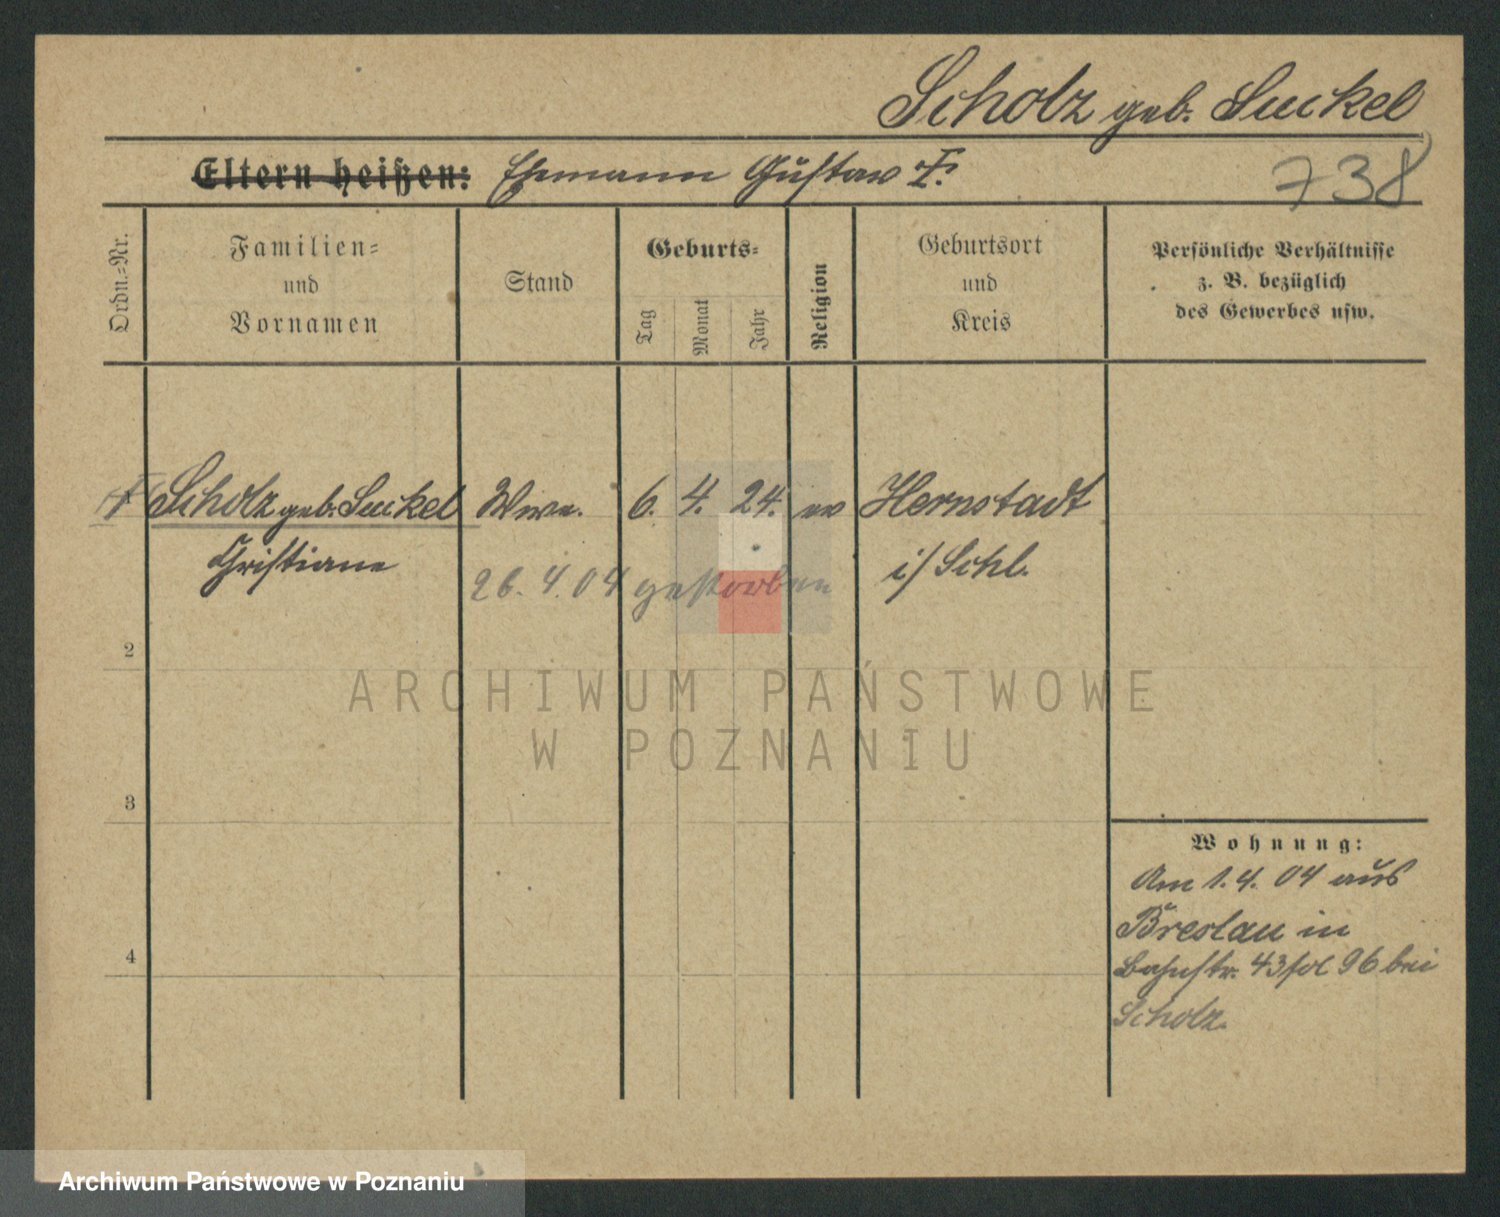 Scholz geb. Suckel
Eltern heißen: Ehemann Gustav †.
738
Ordn.=Nr.
Familien=
und
Vornamen
Stand
Geburts=
Tag
Monat
Jahr
Religion
Geburtsort
und
Kreis
Persönliche Verhältnisse
z. B. bezüglich
des Gewerbes usw.
† Scholz geb. Suckel Wwe. 6. 4. 24. ev Hernstadt
Christiane i/ Schl.
26. 4. 04 gestorben
2
3
4
Wohnung:
Am 1. 4. 04 aus
Breslau in
43 fol 96 bei
Scholz.
ARCHIWUM PAŃSTWOWE
W POZNANIU
Archiwum Państwowe w Poznaniu